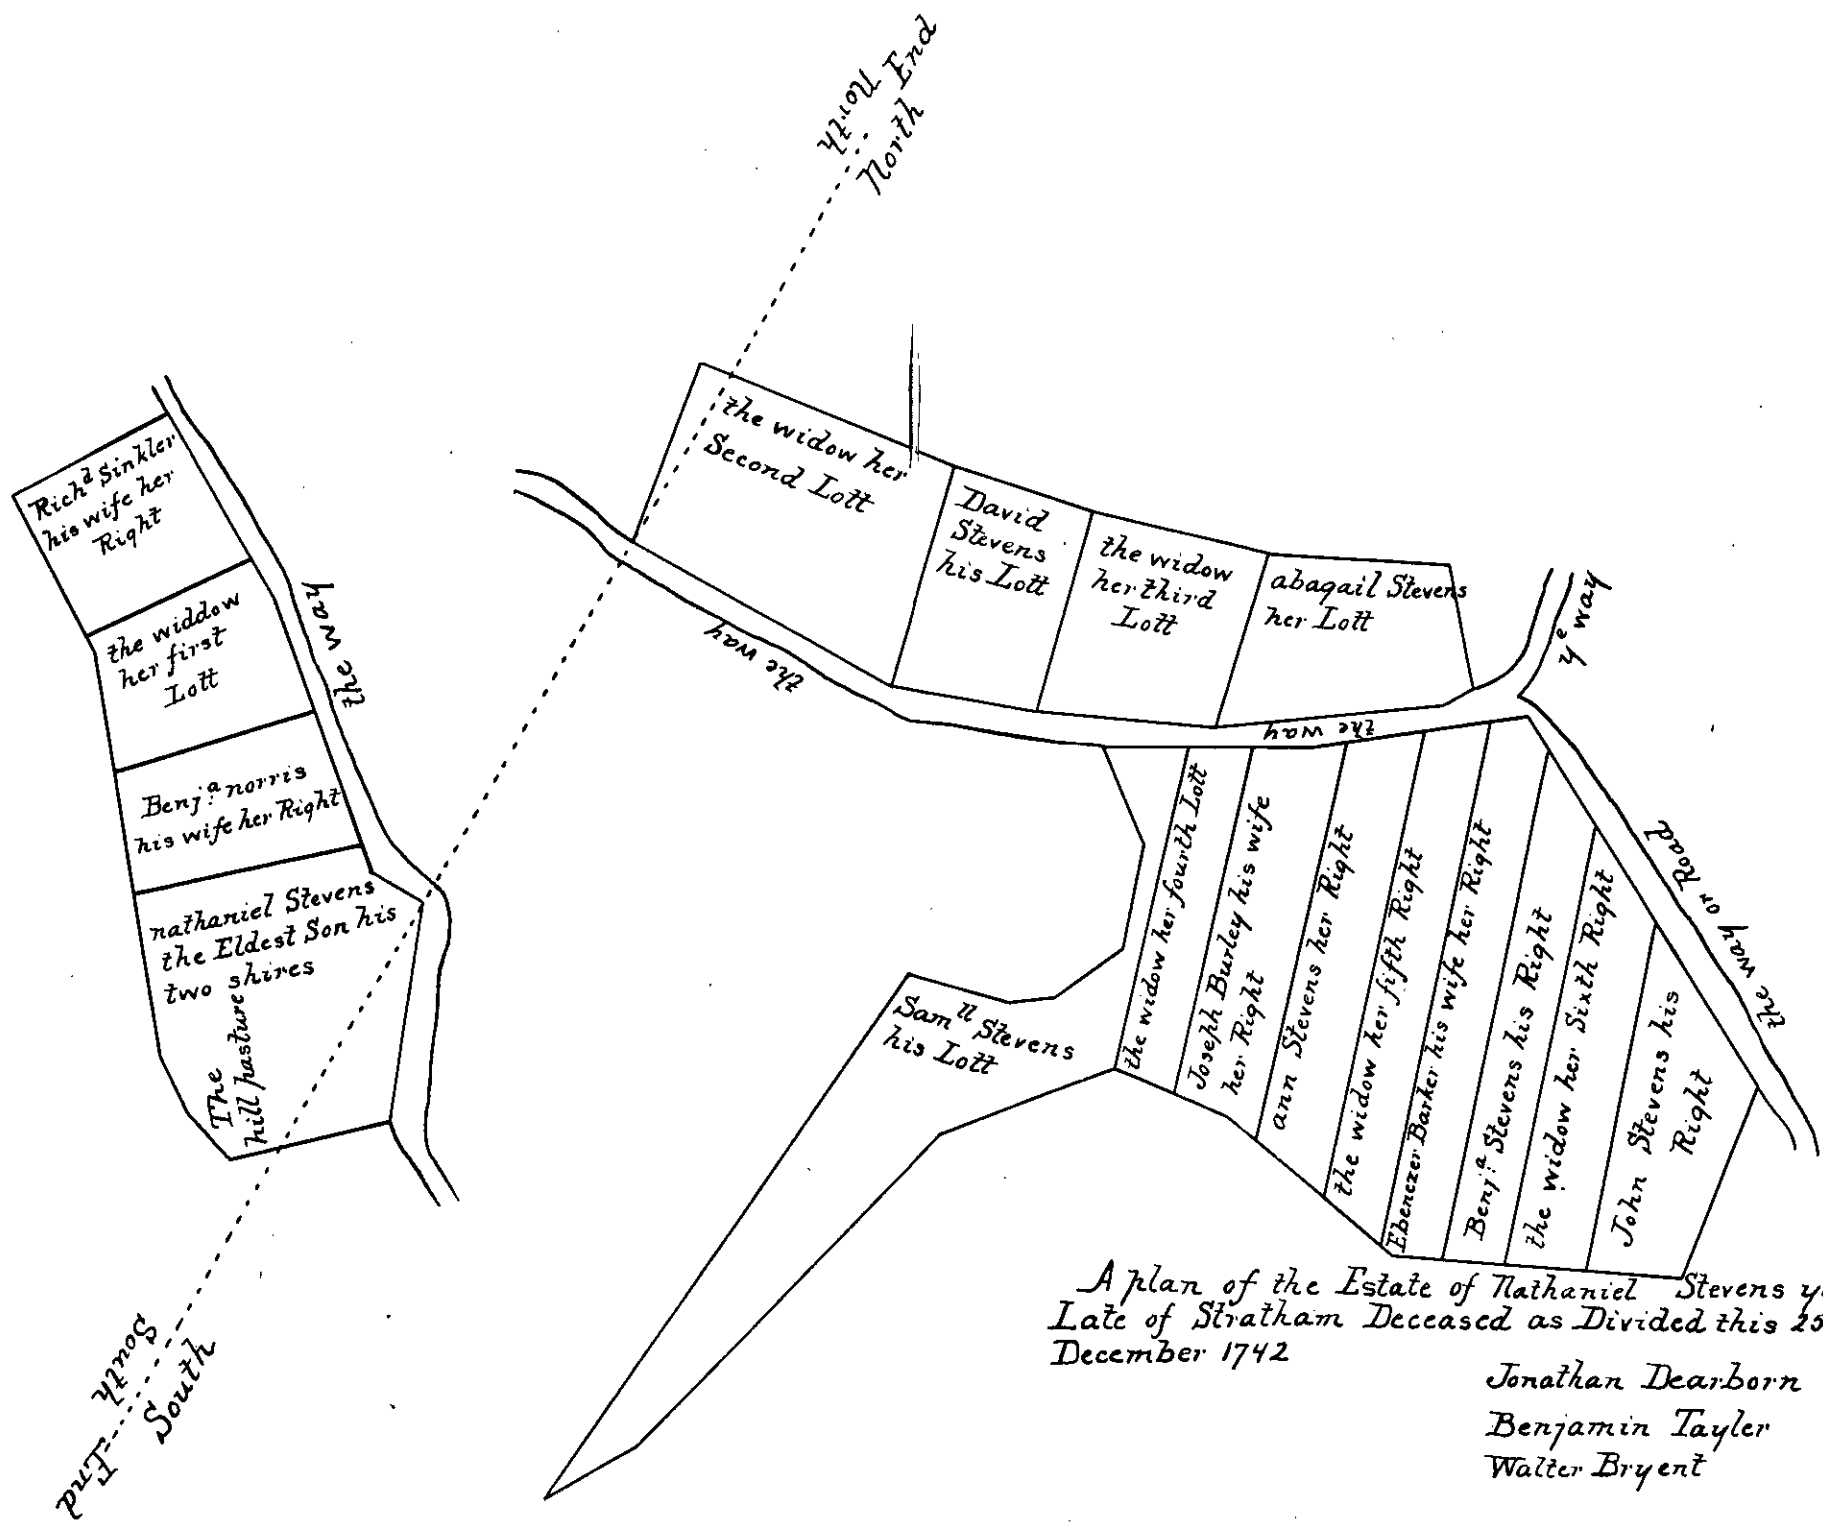 North End
North
Richd Sinkler
his wife her
Right
the widdow
her first
Lott
Benja: norris
his wife her Right
nathaniel Stevens
the Eldest Son his
two shires
The
hill pasture
the way
the widow her
Second Lott
David
Stevens
his Lott
the widow
her third
Lott
abagail Stevens
her Lott
the way
the way
ye way
the way or Road
Samll Stevens
his Lott
the widow her fourth Lott
Joseph Burley his wife
her Right
ann Stevens her Right
the widow her fifth Right
Ebenezer Barker his wife her Right
Benja: Stevens his Right
the widow her Sixth Right
John Stevens his
Right
South
South
End
A plan of the Estate of Nathaniel Stevens
Late of Stratham Deceased as Divided this 25
December 1742
Jonathan Dearborn
Benjamin Tayler
Walter Bryent